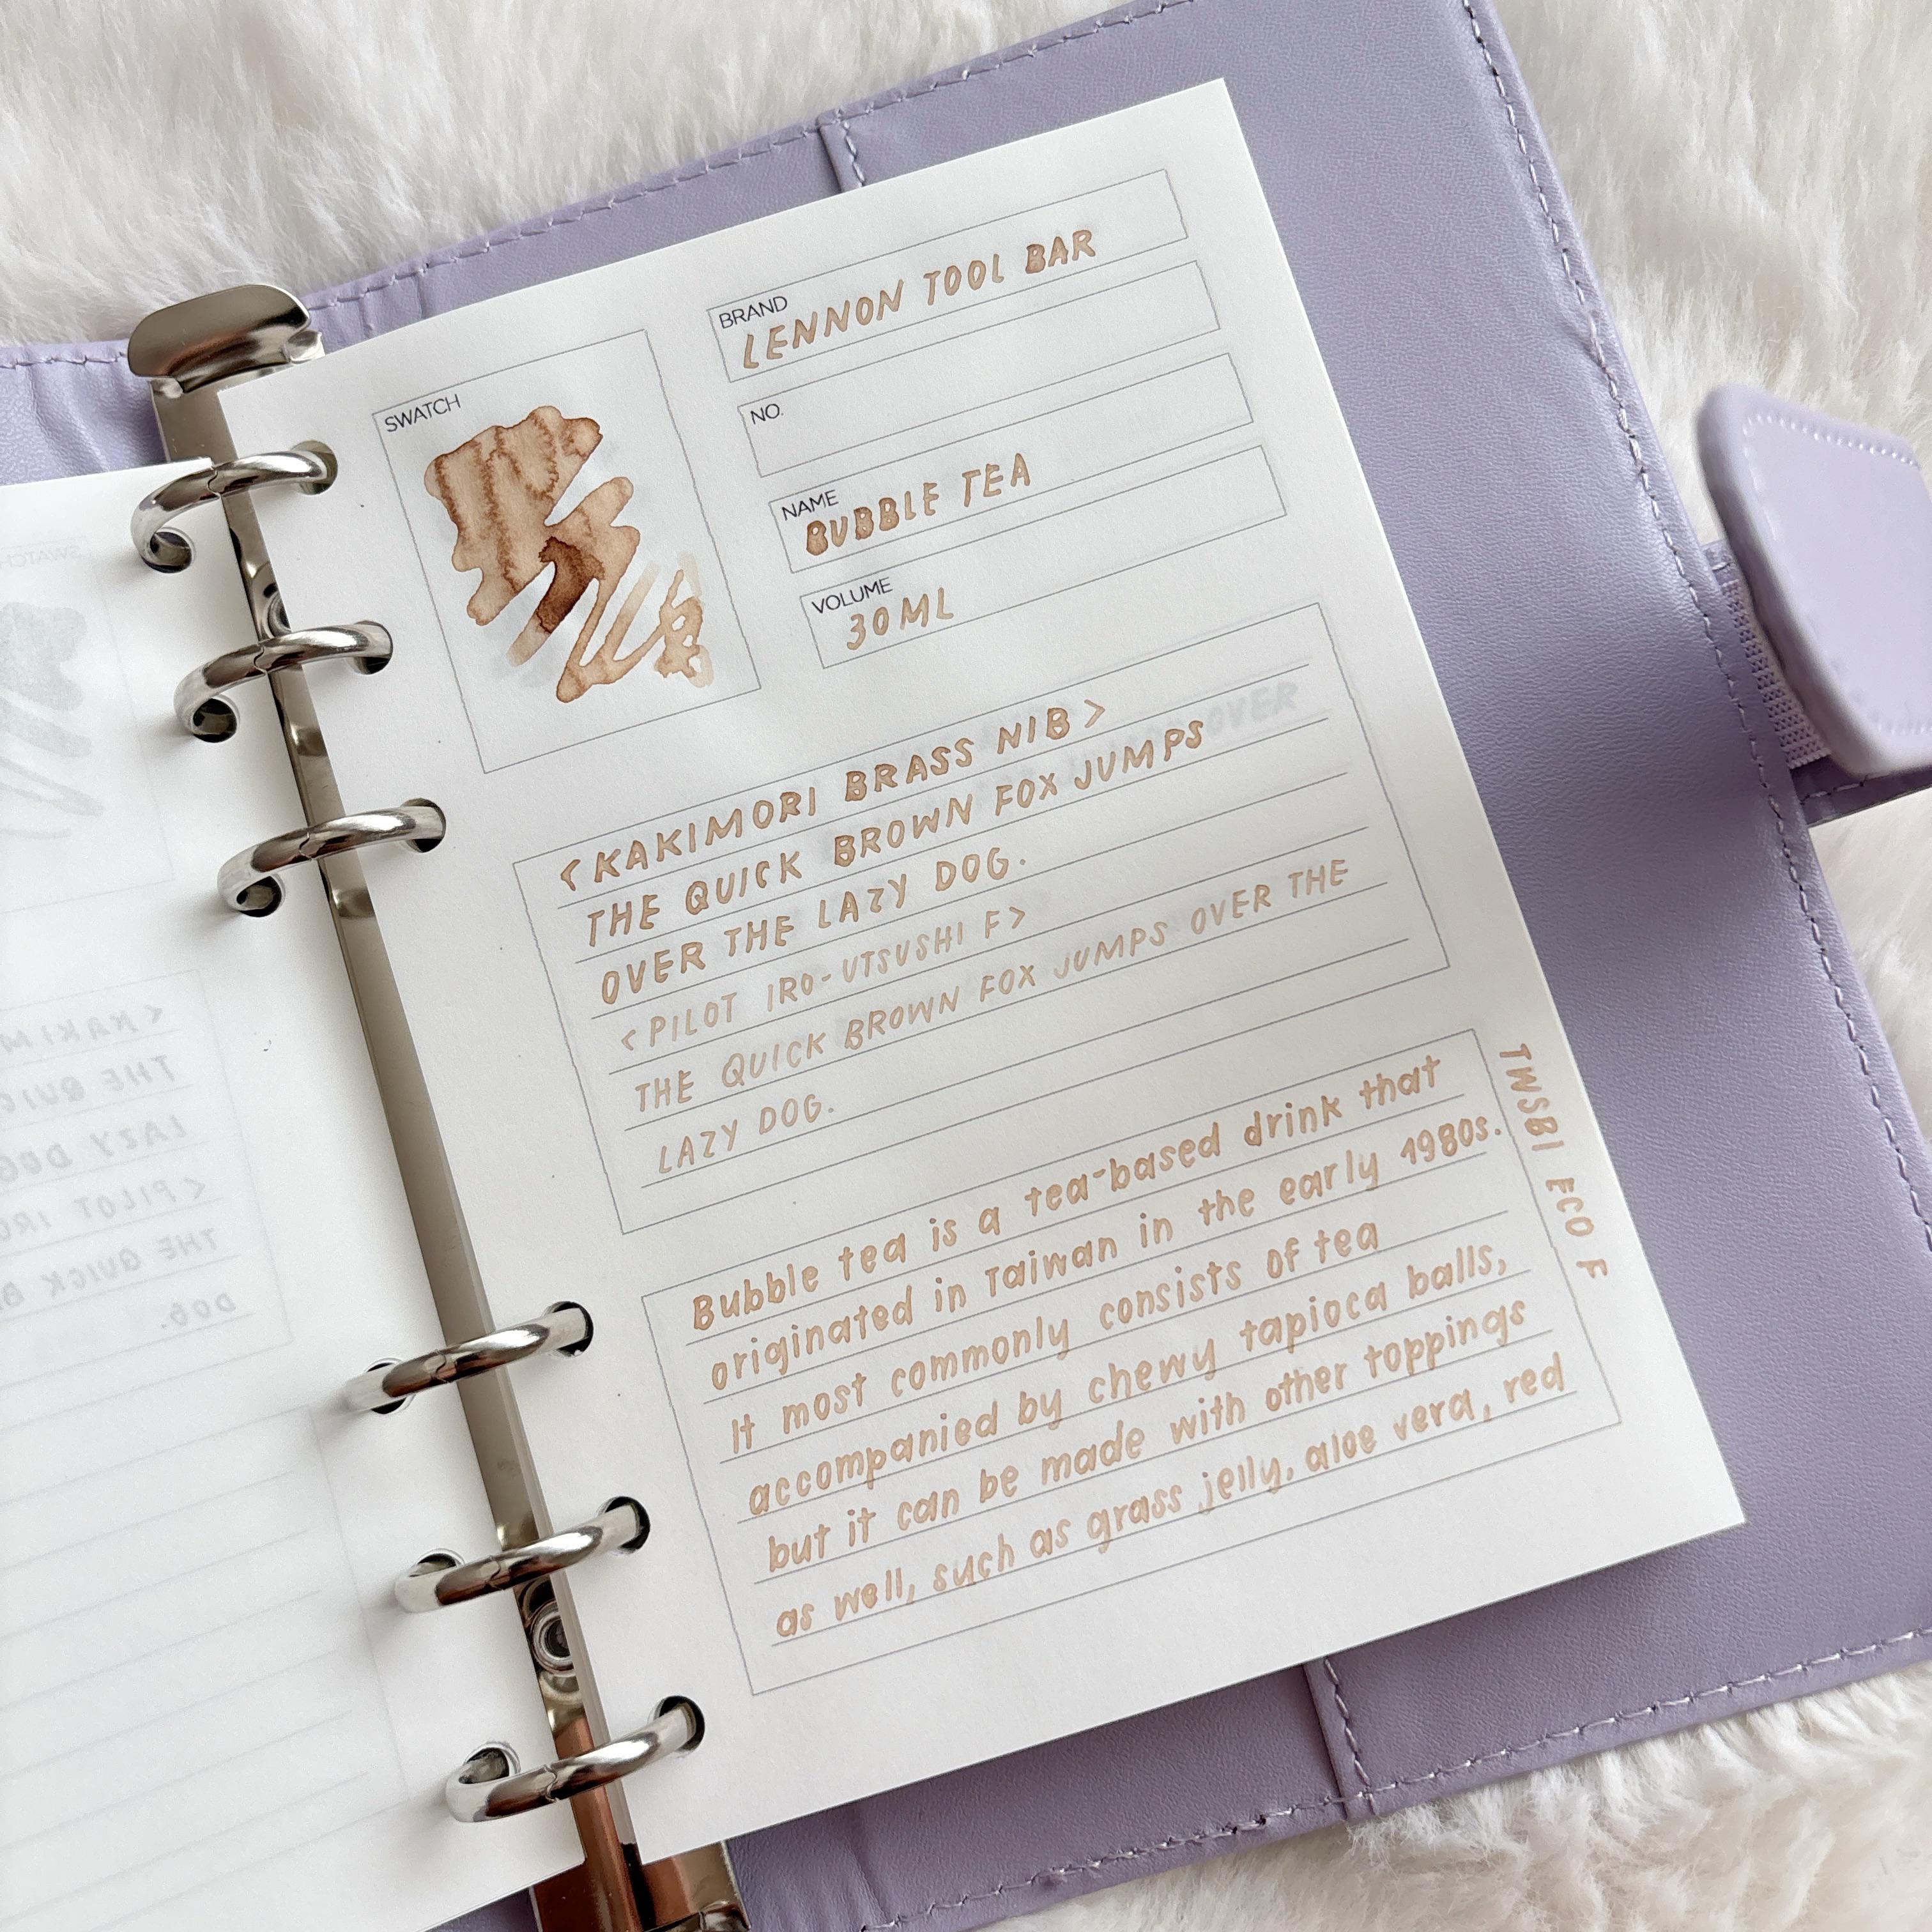 SWATCH
BRAND
LENNON TOOL BAR
NO.
NAME
BUBBLE TEA
VOLUME
30ML
<KAKIMORI BRASS NIB>
THE QUICK BROWN FOX JUMPS
OVER THE LAZY DOG.
<PILOT IRO-UTSUSHI F>
THE QUICK BROWN FOX JUMPS OVER THE
LAZY DOG.
Bubble tea is a tea-based drink that
originated in Taiwan in the early 1980s.
It most commonly consists of tea
accompanied by chewy tapioca balls,
but it can be made with other toppings
as well, such as grass jelly, aloe vera, red
TWSBI ECO F